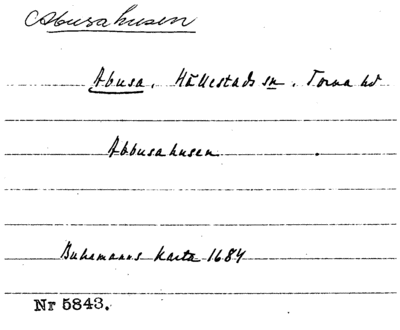 Abusahusen
Abusa. Hällestads sn. Torna hd
Abbusahusen
Buhrmanns Karta 1684
Nr 5843.